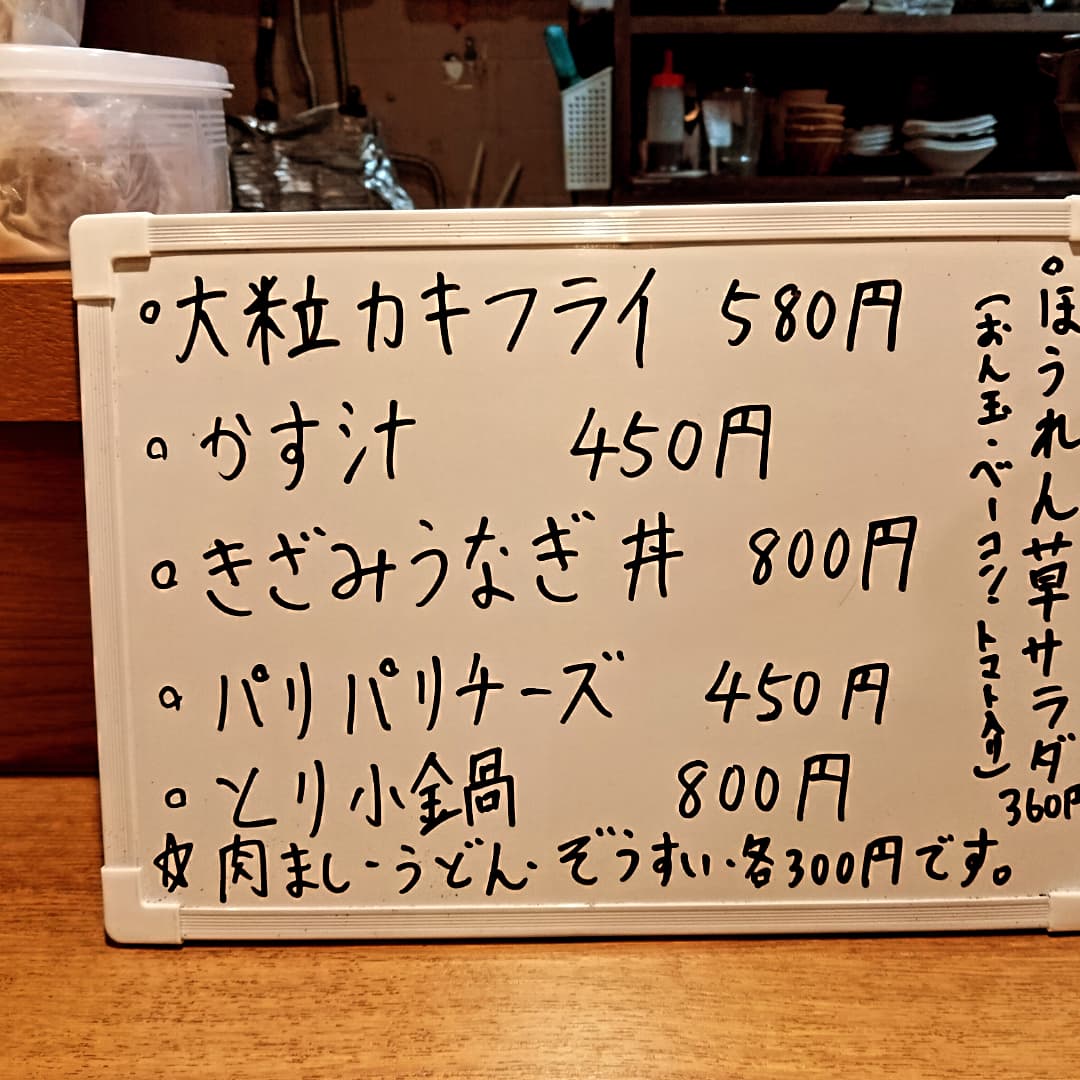 。大粒カキフライ 580円
。かす汁 450円
。きざみうなぎ丼 800円
。パリパリチーズ 450円
。とり小鍋 800円
☆肉まし・うどん・ぞうすい・各300円です。
。ほうれん草サラダ
(おん玉・ベーコン・トマト入り)
360円